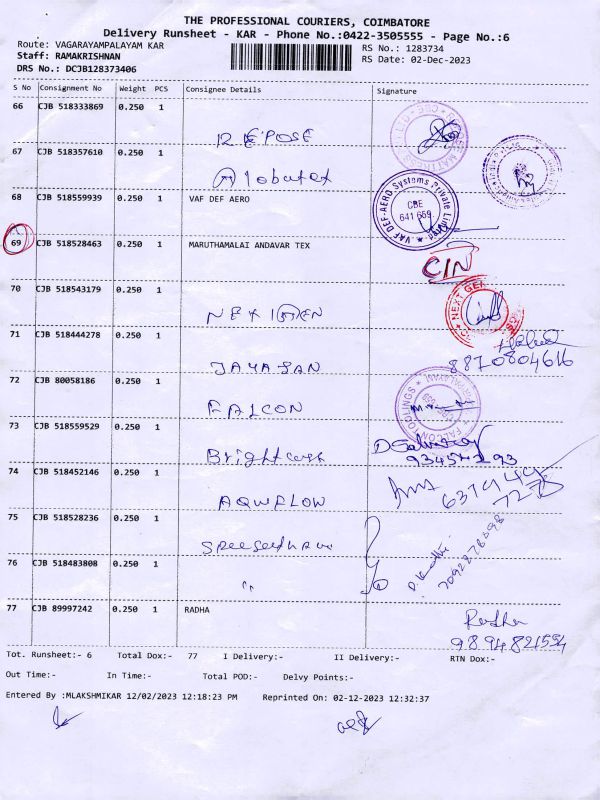 THE PROFESSIONAL COURIERS, COIMBATORE
Delivery Runsheet - KAR - Phone No.:0422-3505555 - Page No.:6
Route: VAGARAYAMPALAYAM KAR
RS No.: 1283734
Staff: RAMAKRISHNAN
RS Date: 02-Dec-2023
DRS No.: DCJB128373406
S No Consignment No Weight PCS Consignee Details Signature
66 CJB 518333869 0.250 1
REPOSE
67 CJB 518357610 0.250 1
68 CJB 518559939 0.250 1 VAF DEF AERO
VAF DEF-AERO Systems Private Limited
CBE
641 659
69 CJB 518528463 0.250 1 MARUTHAMALAI ANDAVAR TEX
C/N
70 CJB 518543179 0.250 1
NEXTGEN
NEXT GEN
71 CJB 518444278 0.250 1
JAYARAN
8870804616
72 CJB 80058186 0.250 1
FALCON
FALCON TOOLINGS
73 CJB 518559529 0.250 1
74 CJB 518452146 0.250 1
AQWFLOW
75 CJB 518528236 0.250 1
76 CJB 518483808 0.250 1
"
77 CJB 89997242 0.250 1 RADHA
Radha
9894821554
Tot. Runsheet:- 6 Total Dox:- 77 I Delivery:- II Delivery:- RTN Dox:-
Out Time:- In Time:- Total POD:- Delvy Points:-
Entered By :MLAKSHMIKAR 12/02/2023 12:18:23 PM Reprinted On: 02-12-2023 12:32:37